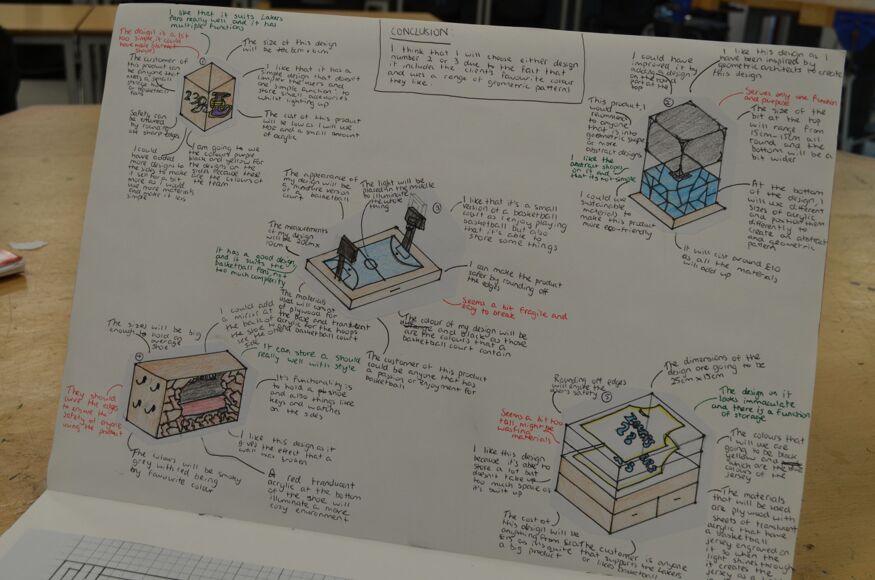 I like that it suits Lakers
fans really well and it has
multiple functions
The design is a bit
too simple, it could
have more
The size of this design
will be
The customer of
this product can
be anyone that
I like that it has a
simple design that doesn't
the users and
the simple function to
store small accessories
whilst lighting up
The cost of this product
will be low as I will use
MDF and a small amount
of acrylic
Safety can
be ensured
by rounding
sharp edges
I could
have added
more designs to
the sides to make
it sell for a bit
more as I would
use more materials
and make it less
simple
I am going to use
the colours purple
black and yellow for
the designs on the
sides because these
are the colours of
the team
CONCLUSION:
I think that I will choose either design
number 2 or 3 due to the fact that
it include the clients favourite colour
and uses a range of geometric patterns
they like.
I could have
improved it by
adding a design on
the
part at the
top
I like this design as I
have been inspired by
geometric architects to create
this design
②
Serves only one function
and purpose
The size of the
bit at the top
will range from
15cm×15cm all
round and the
bottom will be a
bit wider
This product, I
would
recommend
to anyone
that is into
geometric shapes
or more
abstract designs
I like the
abstract shapes
on it and
that its not simple
I could use
sustainable
materials to
make this product
more eco-friendly
At the bottom
of the design, I
will use different
sizes of acrylic
and position them
differently to
create an abstract
and geometric
pattern
It will cost around £10
as all the materials
will add up
The appearance of
my design will be
of miniature version
of a basketball
court
The light will be
placed in the middle
to illuminate
the whole
thing
③
I like that it's a small
version of a basketball
court as I enjoy playing
basketball but also
that it's able to
store some things
The measurements
of my design
will be 20cm×
10cm
It has a good design
and it suits the
basketball fans, not
too much complexity
The materials
used will consist
of plywood for
the base and translucent
acrylic for the hoops
and basketball court
I can make the product
safer by rounding off
the edges
Seems a bit fragile and
easy to break
The colour of my design will be
and black as those
are the colours that a
basketball court contain
The customer of this product
could be anyone that has
a passion or enjoyment for
basketball
The sizes will be big
enough to hold an
average
shoe
I could add
a mirror at
the back of
the shoe to
see the other
side
④
It can store a shoe
really well with style
It's functionality is
to hold a shoe
and also things like
keys and watches
on the sides
They should
curve the edges
to ensure the
safety of anyone
using the product
I like this design as it
gives the effect that a
wall was broken
The colours will be smoky
grey with red being
my favourite colour
A red translucent
acrylic at the bottom
of the shoe will
illuminate a more
cosy environment
Rounding off edges
will ensure the
users safety
⑤
The dimensions of the
design are going to be
25cm×13cm
The design as it
looks immaculate
and there is a function
of storage
Seems a bit too
tall, might be
wasting
materials
I like this design
because it's able to
store a lot but
doesn't take up
too much space as
it's built up
The colours that
I will use are
going to be black
yellow and
which are the
colours of the
jersey
The materials
that will be used
are plywood with
sheets of translucent
acrylic that have
a basketball
jersey engraved on
it so when the
light shines through
it creates the
The cost of
this design will be
anything from
as it's quite
a big product
The customer is anyone
that supports the Lakers
or likes basketball